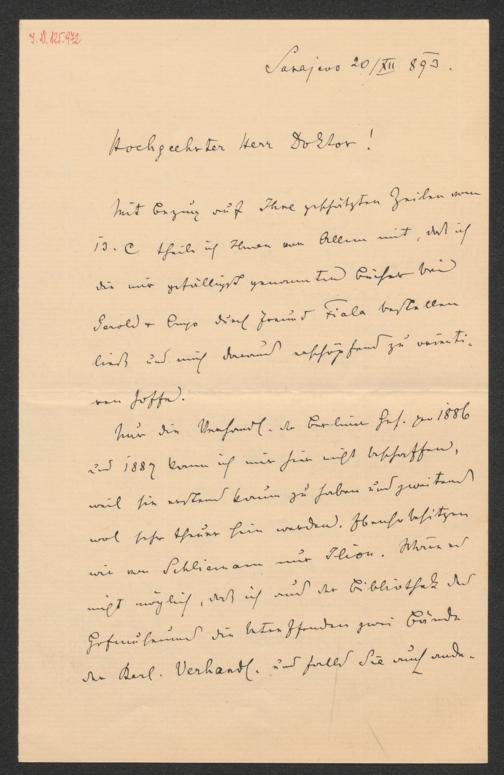 J.N. 125.972
Sarajevo 20/XII 893.
Hochgeehrter Herr Doktor!
Mit Bezug auf Ihre geschätzten Zeilen vom
13. C theile ich Ihnen vor Allem mit, daß ich
die mir gefälligst genannten Bücher bei
Gerold & Comp durch Freund Fiala bestellen
ließ und mich daraus erschöpfend zu orienti-
ren hoffe.
Nur die Verhandl. der Berliner Ges. pro 1886
und 1887 kann ich mir hier nicht beschaffen,
weil sie erstens kaum zu haben und zweitens
wol sehr theuer sein werden. Ebenso besitzen
wir von Schliemann nur Ilion. Wäre es
nicht möglich, daß ich aus der Bibliothek des
Hofmuseums die betreffenden zwei Bände
der Berl. Verhandl. und falls Sie auch ande-